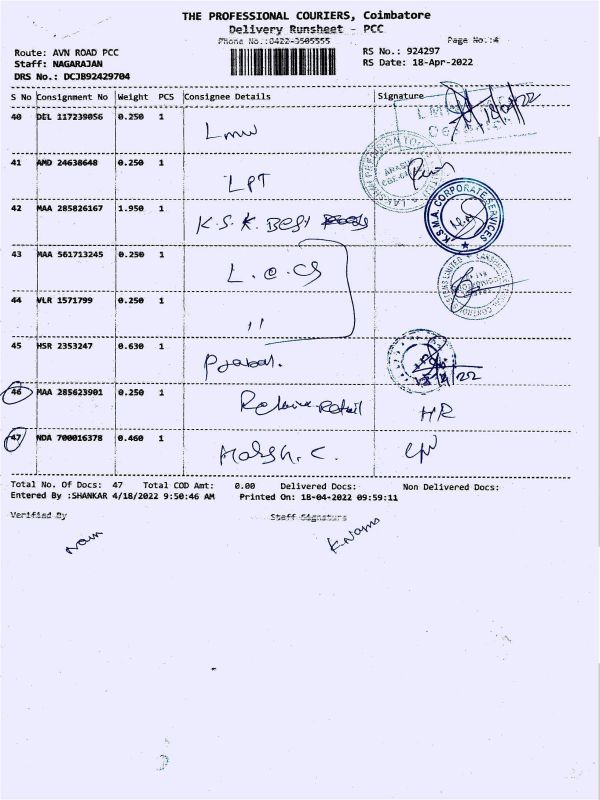 THE PROFESSIONAL COURIERS, Coimbatore
Delivery Runsheet - PCC
Phone No.:0422-3505555 Page No.:4
Route: AVN ROAD PCC RS No.: 924297
Staff: NAGARAJAN RS Date: 18-Apr-2022
DRS No.: DCJB92429704
S No Consignment No Weight PCS Consignee Details Signature
40 DEL 117239056 0.250 1 Lmw
41 AMD 24638648 0.250 1 LPT
42 MAA 285826167 1.950 1 K.S.K. Best
K.S.M.A. CORPORATE SERVICES
43 MAA 561713245 0.250 1 L.e.cs
44 VLR 1571799 0.250 1 ''
45 HSR 2353247 0.630 1
46 MAA 285623901 0.250 1 Retail HR
47 NDA 700016378 0.460 1 Harsh. C.
Total No. Of Docs: 47 Total COD Amt: 0.00 Delivered Docs: Non Delivered Docs:
Entered By :SHANKAR 4/18/2022 9:50:46 AM Printed On: 18-04-2022 09:59:11
Verified By Staff Signature